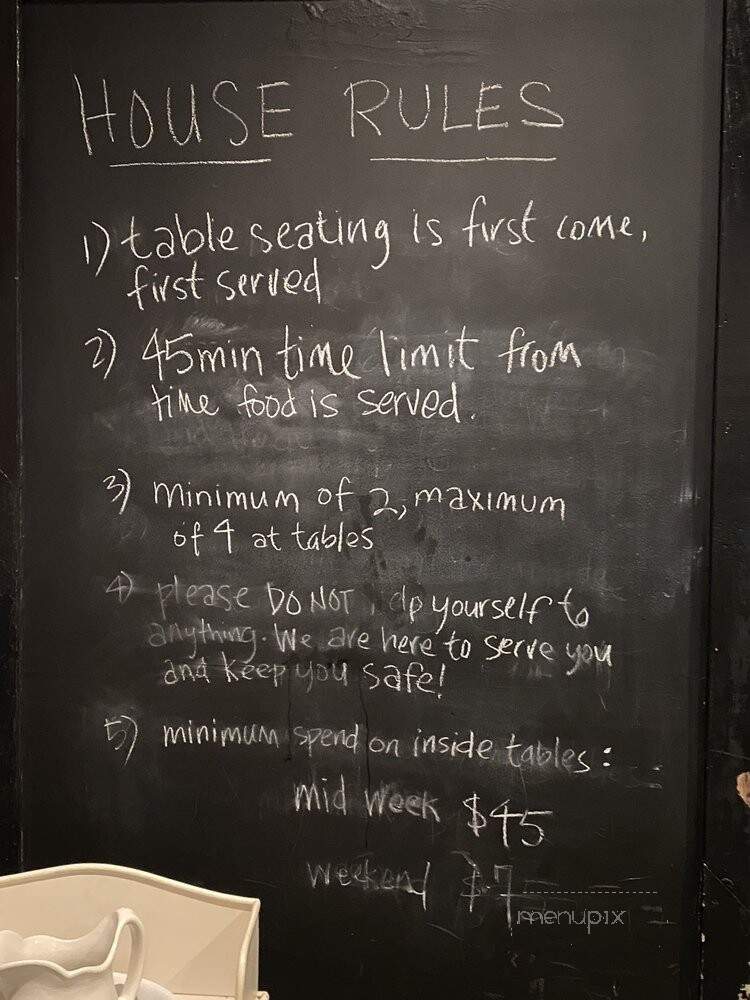 HOUSE RULES
1) table seating is first come,
first served
2) 45min time limit from
time food is served.
3) minimum of 2, maximum
of 4 at tables
4) please DO NOT yourself to
anything. We are here to serve you
and keep you safe!
5) minimum spend on inside tables:
mid week $45
weekend
menupix